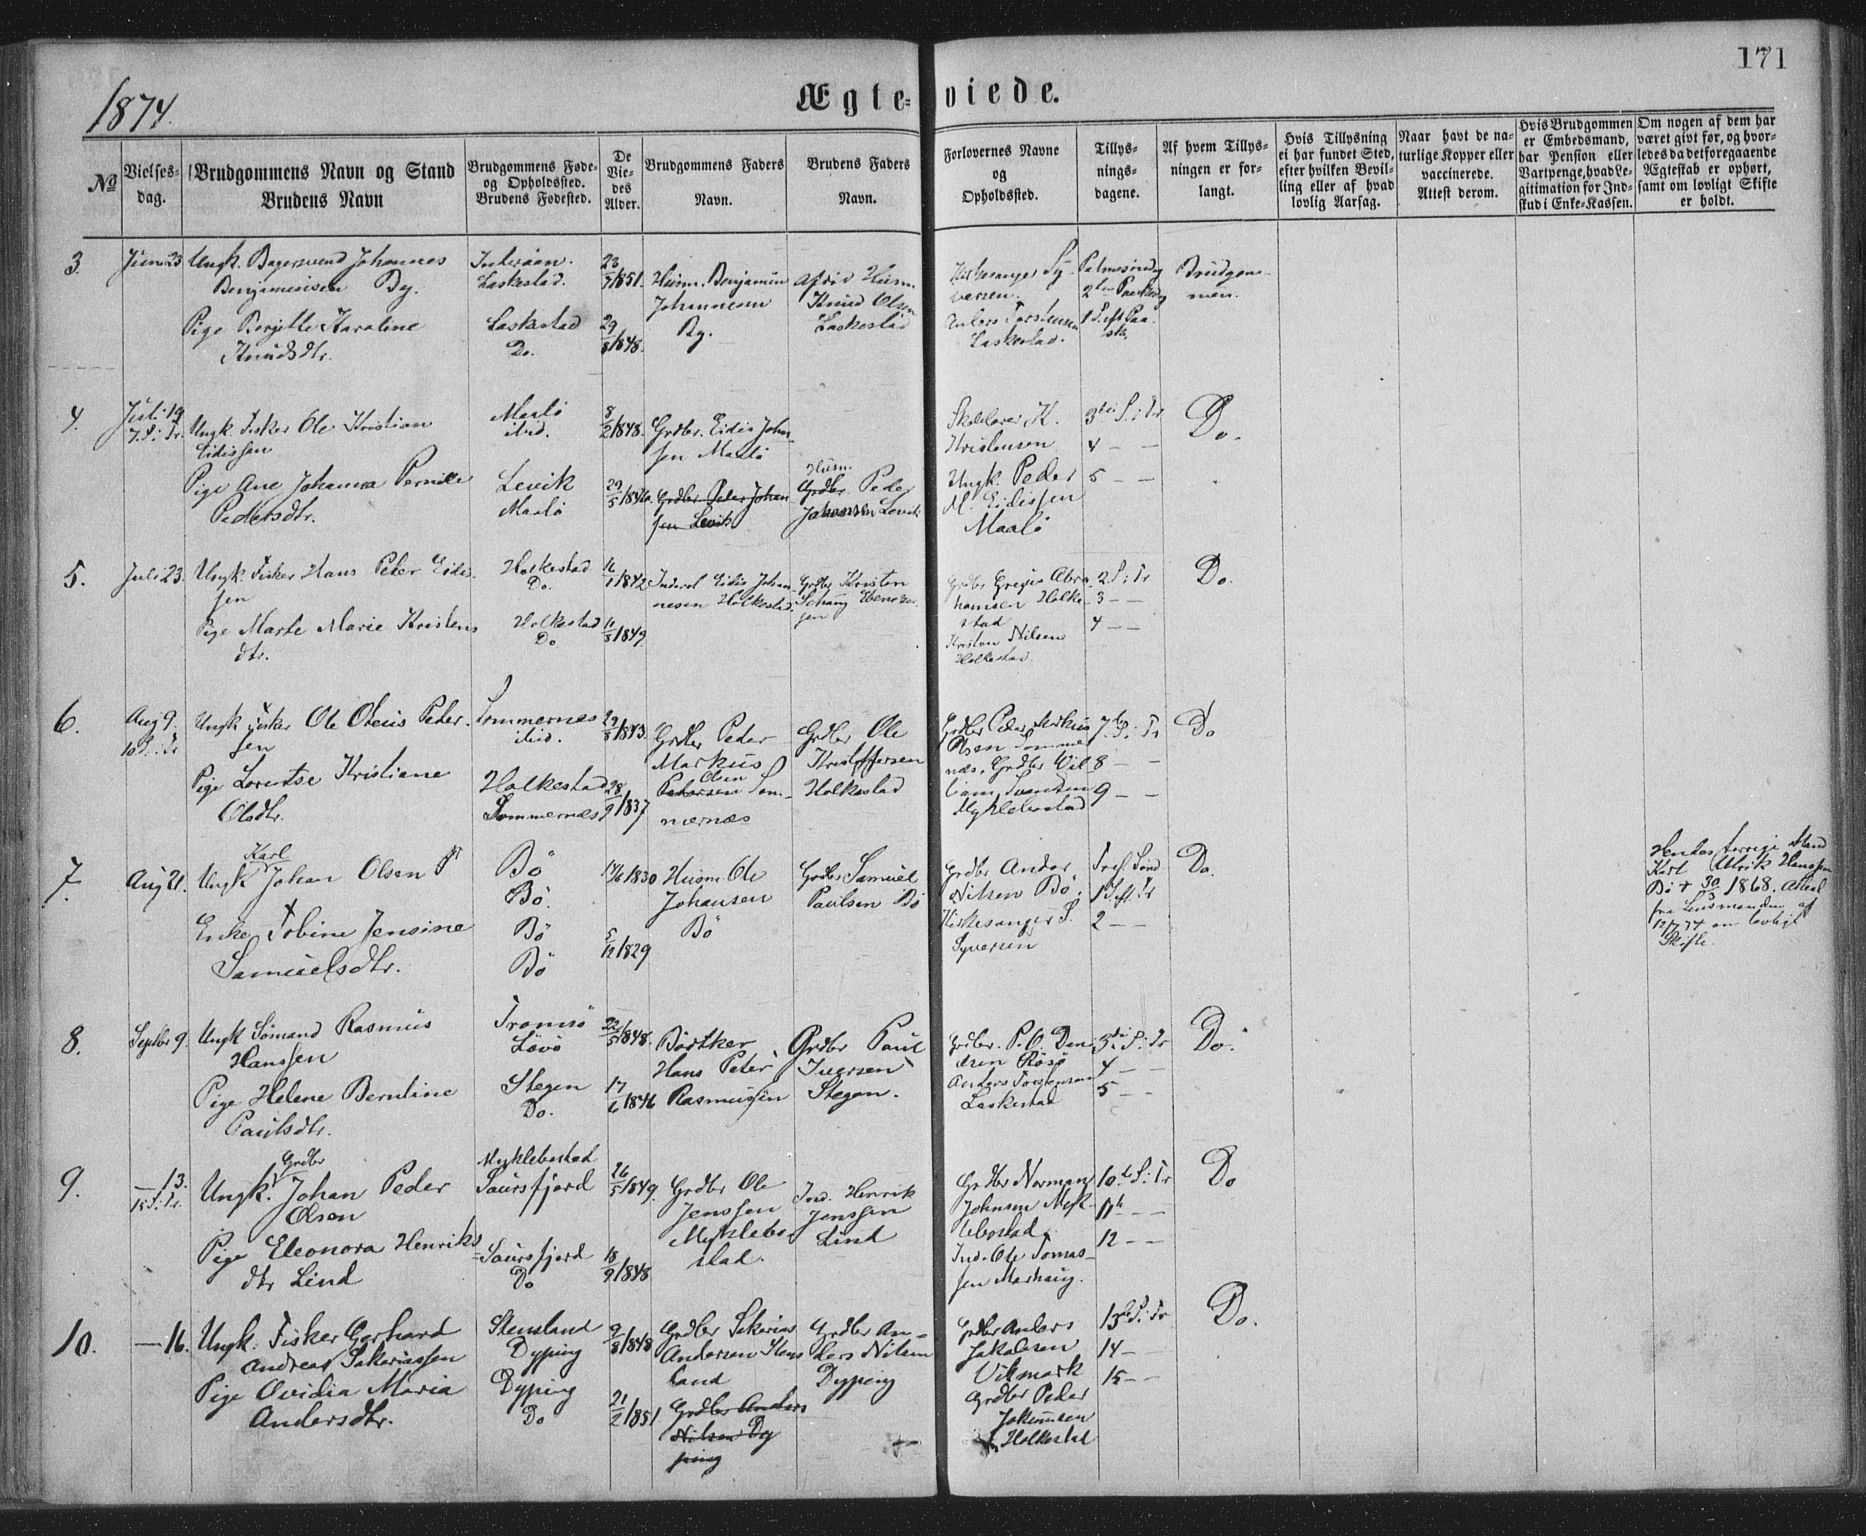 171
1874.
Ægte- viede.
No
Vielses-
dag.
Brudgommens Navn og Stand
Brudens Navn
Brudgommens Føde-
og Opholdssted.
Brudens Fødested.
De
Vie-
des
Alder.
Brudgommens Faders
Navn.
Brudens Faders
Navn.
Forlovernes Navne
og
Opholdssted.
Tillys-
nings-
dagene.
Af hvem Tillys-
ningen er for-
langt.
Hvis Tillysning
ei har fundet Sted,
efter hvilken Bevil-
ling eller af hvad
lovlig Aarsag.
Naar havt de na-
turlige Kopper eller
vaccinerede.
Attest derom.
Hvis Brudgommen
er Embedsmand,
har Pension eller
Vartpenge, hvad Le-
gitimation for Ind-
skud i Enke-Kassen.
Om nogen af dem har
været givt før, og hvor-
ledes da det foregaaende
Ægteskab er ophørt,
samt om lovligt Skifte
er holdt.
3.
Juni 23
Ungk. Bagersvend Johannes
Benjaminsen By.
Pige Berjette Karoline
Knudsdtr.
Inderøen.
Laskestad.
Laskestad
Do.
23/7 1851.
29/8 1848.
Husm. Benjamin
Johannesen
By.
Afdø Husm.
Knud Olsen
Laskestad
Kirkesanger Sy-
versen.
Anders Torstensen
Laskestad.
Palmesøndag
2den Paaskedag
1 S. eft. Paa-
ske.
Brudgom-
men.
4.
Juli 19
7. S. i Tr.
Ungk. Fisker Ole Kristian
Eidissen
Pige Ane Johanna Pernille
Pedersdtr.
Maalø
ibid.
Levik
Maalø
8/2 1848.
29/5 1846.
Grdbr. Eidis Johan-
sen Maalø
Grdbr Peder Johan
sen Levik
Husm.
Grdbr Peder
Johansen Levik
Skolelærer K.
Kristensen
Ungk. Peder
M. Eidissen
Maalø
3die S. i Tr
4 — —
5 — —
Do.
5.
Juli 23.
Ungk. Fisker Hans Peter Eidis-
sen
Pige Marte Marie Kristens
dtr.
Holkestad
Do.
Holkestad
Do
16/1 1842
11/8 1849
Inderst Eidis Johan-
nesen Holkestad.
Grdbr Kristen
Schaug Ebenezer
sen
Grdbr Gregus Abra-
hamsen Holke-
stad
Kristen Nilsen
Holkestad.
2. S. i Tr
3 — —
4 — —
Do.
6.
Aug 9.
10 S. i Tr
Ungk Fisker Ole Oteus Peder-
sen
Pige Lorentse Kristiane
Olsdtr.
Sommernes
ibid.
Holkestad
Sommernæs
29/8 1843.
28/9 1837
Grdbr Peder
Markus
Olsen
Pedersen Som-
mernæs
Grdbr Ole
Kristoffersen
Holkestad
Grdbr Peder Markus
Olsen Sommer
næs. Grdbr Wil-
liam Svendsen
Myklebostad
7de S. i Tr
8 — —
9 — —
Do
7.
Aug 21.
Karl
Ungk Johan Olsen
Enke Tobine Jensine
Samuelsdtr.
Bø
Bø.
Bø
Bø
14/6 1830
5/12 1829
Husm Ole
Johansen
Bø
Grdbr Samuel
Paulsen Bø
Grdbr Andor
Nilsen Bø.
Kirkesanger S.
Syversen
Tref. Sønd
1 S eft Tr
2 — —
Do.
Hendes forrige Mand
Karl Ulrik Hanssen
Bø + 30/3 1868. Attest
fra Lensmanden af
12/7 74 om lovligt
Skifte.
8.
Septbr 9.
Ungk Sømand Rasmus
Hansen
Pige Helene Berntine
Paulsdtr.
Tromsø
Løvø
Stegen
Do.
22/5 1848.
17/6 1846
Bødtker
Hans Peter
Rasmussen
Grdbr Paul
Iversen
Stegen.
Grdbr. P. O. Dani-
elsen Røsø
Anders Torstensen
Laskestad
3die S. i Tr
4 — —
5 — —
Do.
9.
— 13.
15 S. i Tr.
Grdbr
Ungk. Johan Peder
Olsen
Pige Eleonora Henriks
dtr Lind
Myklebostad
Saursfjord
Saursfjord
Do
26/5 1849.
18/9 1848
Grdbr Ole
Jenssen
Myklebo-
stad.
Ind. Henrik
Jenssen
Lind
Grdbr Norman
Johnsen Myk-
lebostad
Ind. Ole Tomas-
sen Marhaug.
10de S. i Tr
11te — —
12 — —
Do
10.
— 16.
Ungk. Fisker Gerhard
Andreas Sakariassen
Pige Ovidia Maria
Andersdtr.
Stensland
Dyping
Dyping
Do
9/8 1848
21/2 1851
Grdbr Sakarias
Andersen Stens
land
Grdbr Anders
Nilsen Dy
ping
Grdbr An-
ders Nilsen
Dyping
Grdbr Anders
Jakobsen
Vikmark
Grdbr Peder
Jokumsen
Holkestad
13de S. i Tr
14 —
15 — —
Do.